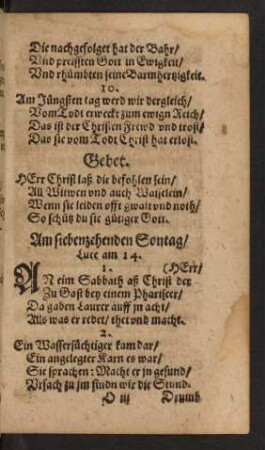 Die nachgefolget hat der Bahr/
Vnd preißten Gott in Ewigkeit/
Vnd rhümbten seine Barmhertzigkeit.
10.
Am Jüngsten tag werd wir dergleich/
Vom Todt erweckt zum ewign Reich/
Das ist der Christen Frewd vnd trost/
Das sie vom Todt Christ hat erlost.
Gebet.
HErr Christ laß die befohlen sein/
All Witwen vnd auch Waiselein/
Wenn sie leiden offt gwalt vnd noth/
So schütz du sie gütiger Gott.
Am siebenzehenden Sontag/
Luce am 14.
1. (HErr/
AN eim Sabbath aß Christ der
Zu Gast bey einem Phariseer/
Da gaben Laurer auff jn acht/
Als was er redet/ thet vnd macht.
2.
Ein Wassersüchtiger kam dar/
Ein angelegter Karn es war/
Sie sprachen: Macht er jn gesund/
Vrsach zu jm findn wir die Stund.
O iij Drumb